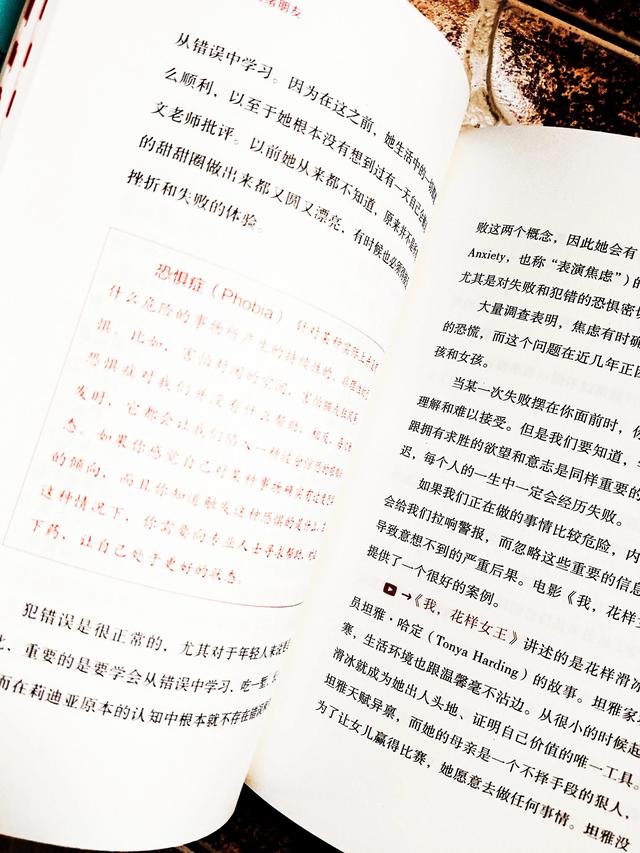 朋友
从错误中学习。因为在这之前，她生活中的一切
么顺利，以至于她根本没有想到过有一天自己
文老师批评。以前她从来都不知道，原来并不是
的甜甜圈做出来都又圆又漂亮，有时候也必须
挫折和失败的体验。
恐惧症（Phobia） 针对某种实际上并没有
什么危险的事物所产生的持续性的、非理性的
惧。比如，害怕封闭的空间，害怕
恐惧症对我们并没有什么帮助，相反，
发时，它都会让我们陷入一种过分
态。如果你感觉自己对某种事物确实有
的倾向，而且你知道触发这种恐惧的是什么，
这种情况下，你需要向专业人士寻求帮助，
下药，让自己处于更好的状态。
犯错误是很正常的，尤其对于年轻人来说
此，重要的是要学会从错误中学习，吃一堑，长
而在莉迪亚原本的认知中根本就不存在
败这两个概念，因此她会有
Anxiety，也称“表演焦虑”）的
尤其是对失败和犯错的恐惧密
大量调查表明，焦虑有时
的恐慌，而这个问题在近几年正
孩和女孩。
当某一次失败摆在你面前时，你
理解和难以接受。但是我们要知道，
跟拥有求胜的欲望和意志是同样重要的
迟，每个人的一生中一定会经历失败。
如果我们正在做的事情比较危险，内
会给我们拉响警报，而忽略这些重要的信息
导致意想不到的严重后果。电影《我，花样
提供了一个很好的案例。
→《我，花样女王》讲述的是花样滑冰
员坦雅·哈定（Tonya Harding）的故事。坦雅家
寒，生活环境也跟温馨毫不沾边。从很小的时候起
滑冰就成为她出人头地、证明自己价值的唯一工具。
坦雅天赋异禀，而她的母亲是一个不择手段的狠人，
为了让女儿赢得比赛，她愿意去做任何事情。坦雅没